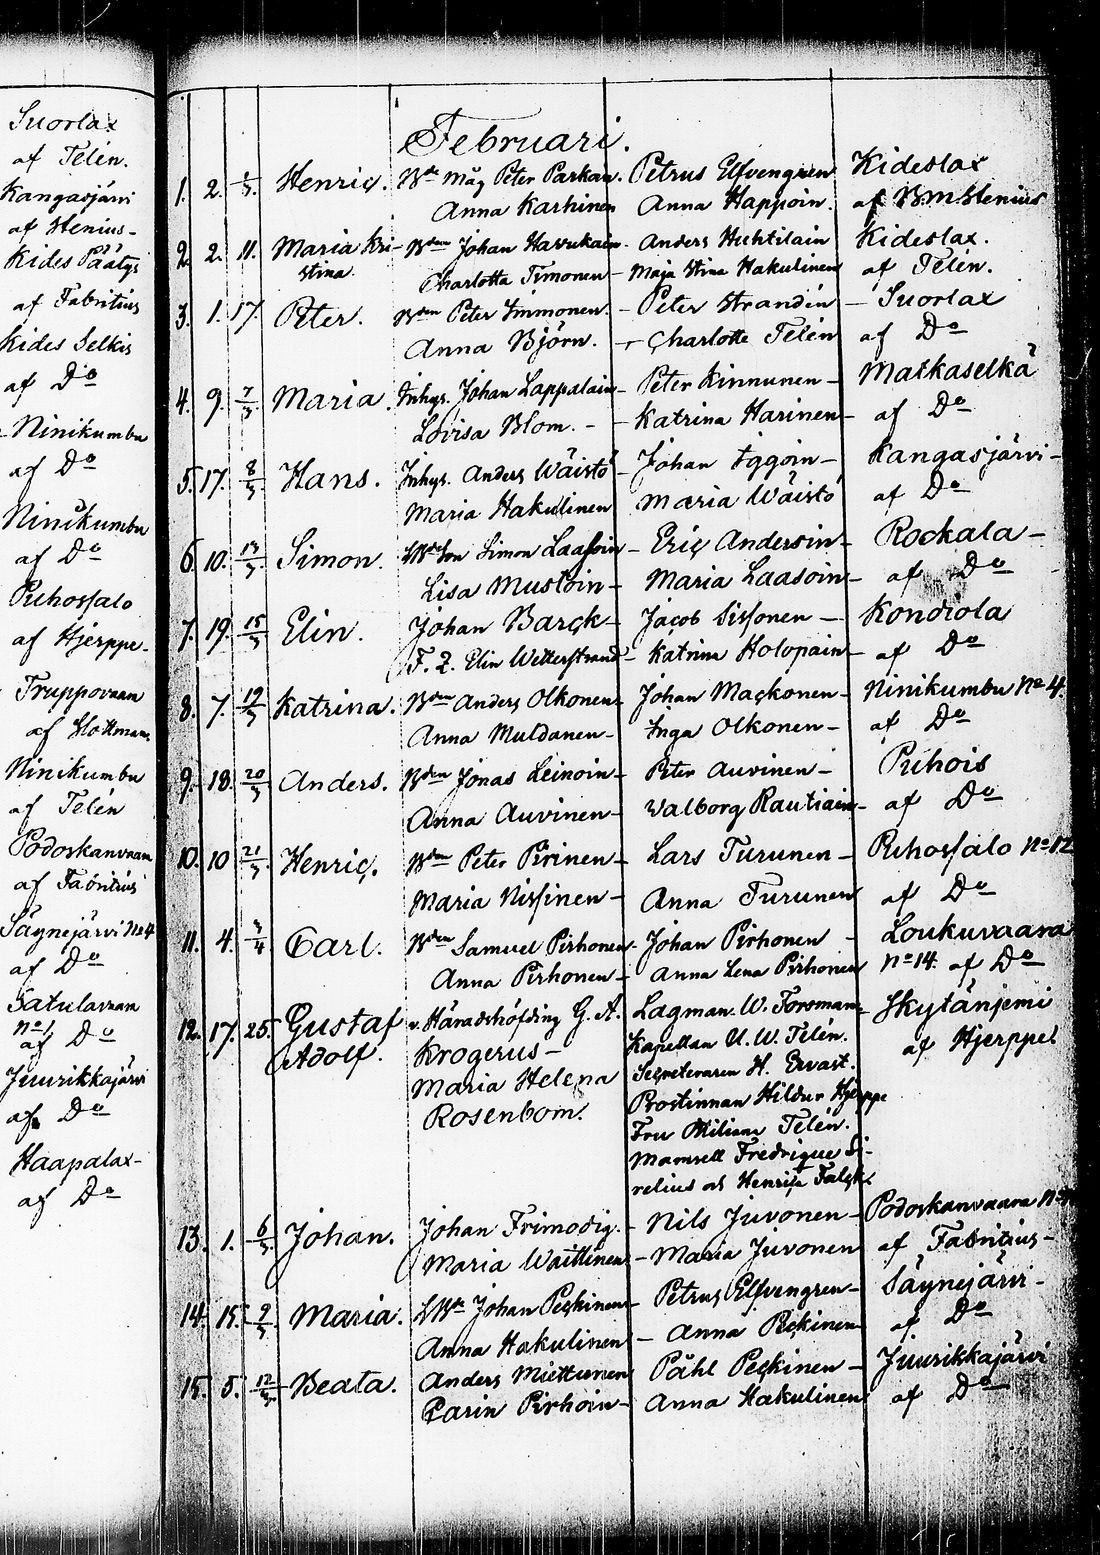 Suorlax
af Telén.
Kangasjärvi
af Stenius-
Kides Päätys
af Fabritius
Kides Selkis
af Do
Ninikumbu
af Do
Ninikumbu
af Do
Puhossalo
af Hjerppe-
Truppovaan
af Hottman.
Ninikumbu
af Telén
Podoskanvaan
af Fabritius
Säynejärvi No4
af Do
Satulavaan
No 1, af Do
Juurikkajärvi
af Do
Haapalax-
af Do
Februari.
1. 2. 1/3. Henric. Bde Måg Peter Parkan. Petrus Elfvengren Kideslax
Anna Karhinen Anna Happoin. af B.m. Stenius
2. 2. 11. Maria Kri- Bden Johan Havukain- Anders Huhtilain Kideslax.
stina. Charlotta Timonen - Maja Stina Hakulinen af Telén.
3. 1. 17. Peter. Bden Peter Immonen. - Peter Strandén - Suorlax
Anna Björn. - Charlotte Telén af Do
4. 9. 7/3 Maria. Inhys. Johan Lappalain- Peter Kinnunen - Matkaselkä
Lovisa Blom. - Katrina Harinen- af Do
5. 17. 8/3 Hans. Inhys. Anders Wäistö Johan Iggoin- Kangasjärvi-
Maria Hakulinen Maria Wäistö af Do
6. 10. 13/3 Simon. Simon Laasoin- Eric Andersin- Rockala-
Lisa Mustoin- Maria Laasoin- af Do
7. 19. 15/3 Elin. Johan Barck- Jacob Sissonen - Kondiola
F. Z. Elin Wetterstrand- Katrina Holopain- af Do
8. 7. 19/3 Katrina. Bden Anders Olkonen- Johan Mackonen- Ninikumbu No 4.
Anna Muldanen- Inga Olkonen- af Do
9. 18. 20/3 Anders. Bden Jonas Leinoin- Peter Auvinen- Puhois
Anna Auvinen- Walborg Rautiain- af Do
10. 10 21/3. Henric. Bden Peter Pirinen- Lars Turunen- Puhossalo No 12
Maria Nissinen- Anna Turunen af Do
11. 4. 3/4 Carl. Bden Samuel Pirhonen- Johan Pirhonen - Loukuvaara
Anna Pirhonen- Anna Lena Pirhonen No 14. af Do
12. 17. 25. Gustaf v. Häradshöfding G. A. Lagman W. Forsman- Skytänjemi
Adolf. Krogerus- Kapellan U. W. Telén. af Hjerppe
Maria Helena Secreteraren H. Ervast.
Rosenbom. Prostinnan Hildur Hjerppe
Fru Miliana Telén.
Mamsell Fredrique Si-
relius och Henrica Falck.
13. 1. 6/3 Johan. Johan Frimodig. - Nils Juvonen- Podoskanvaara
Maria Waittinen - Maria Juvonen af Fabritius-
14. 15. 9/3 Maria. Johan Peckinen- Petrus Elfvengren- Säynejärvi-
Anna Hakulinen - Anna Peckinen af Do
15. 5. 12/3 Beata. Anders Miettunen Påhl Peckinen- Juurikkajärvi
Carin Pirhoin- Anna Hakulinen af Do